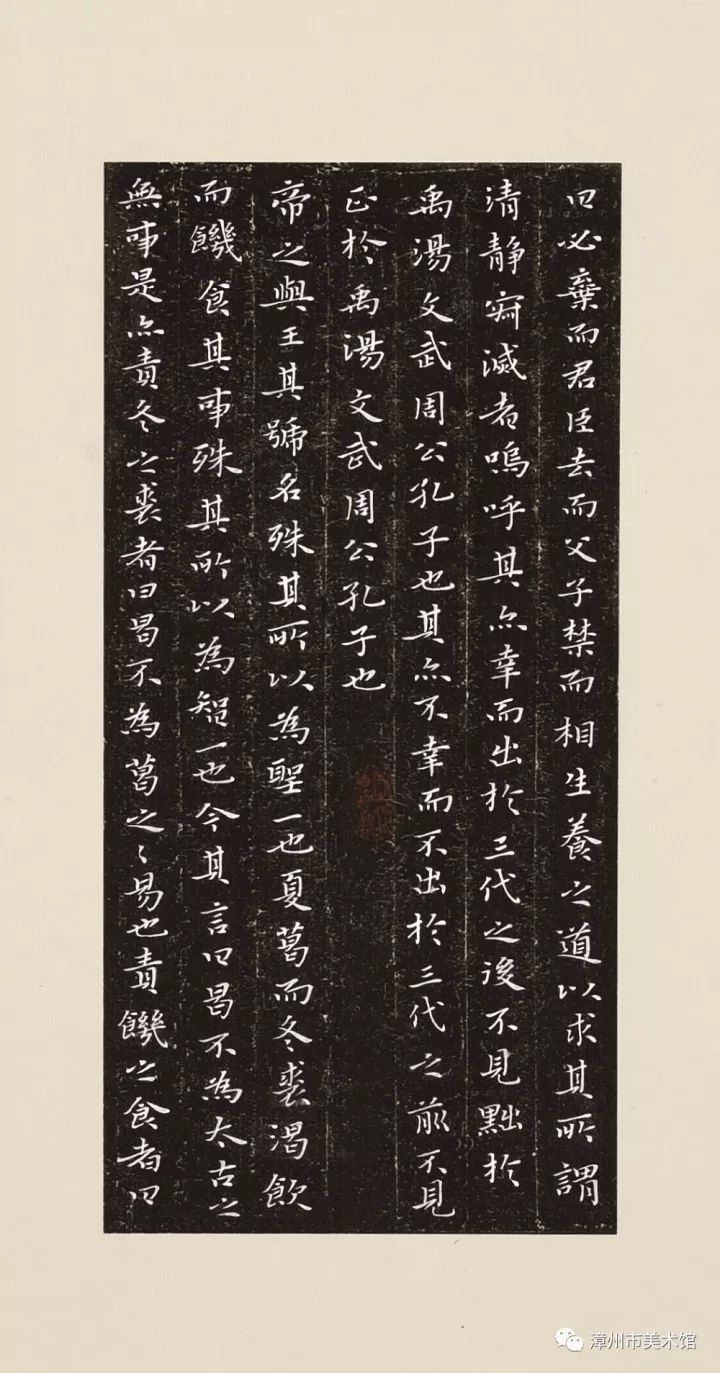 曰必棄而君臣去而父子禁而相生養之道以求其所謂
清静寂滅者嗚呼其亦幸而出於三代之後不見黜於
禹湯文武周公孔子也其亦不幸而不出於三代之前不見
正於禹湯文武周公孔子也
帝之與王其號名殊其所以為聖一也夏葛而冬裘渴飲
而饑食其事殊其所以為智一也今其言曰曷不為太古之
無事是亦責冬之裘者曰曷不為葛之〻易也責饑之食者曰
漳州市美术馆